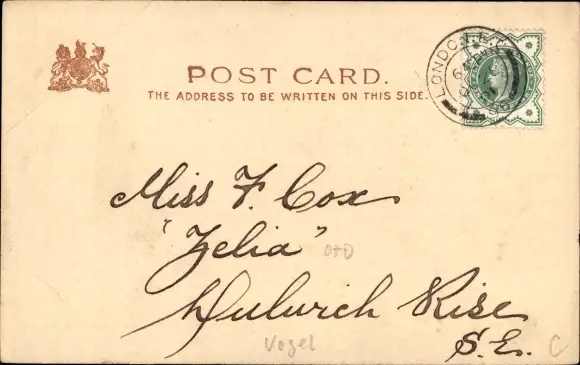 POST CARD.
THE ADDRESS TO BE WRITTEN ON THIS SIDE.
LONDON. E.C
Miss F. Cox
"Zelia"
Dulwich Rise
S.E.
Vogel
C